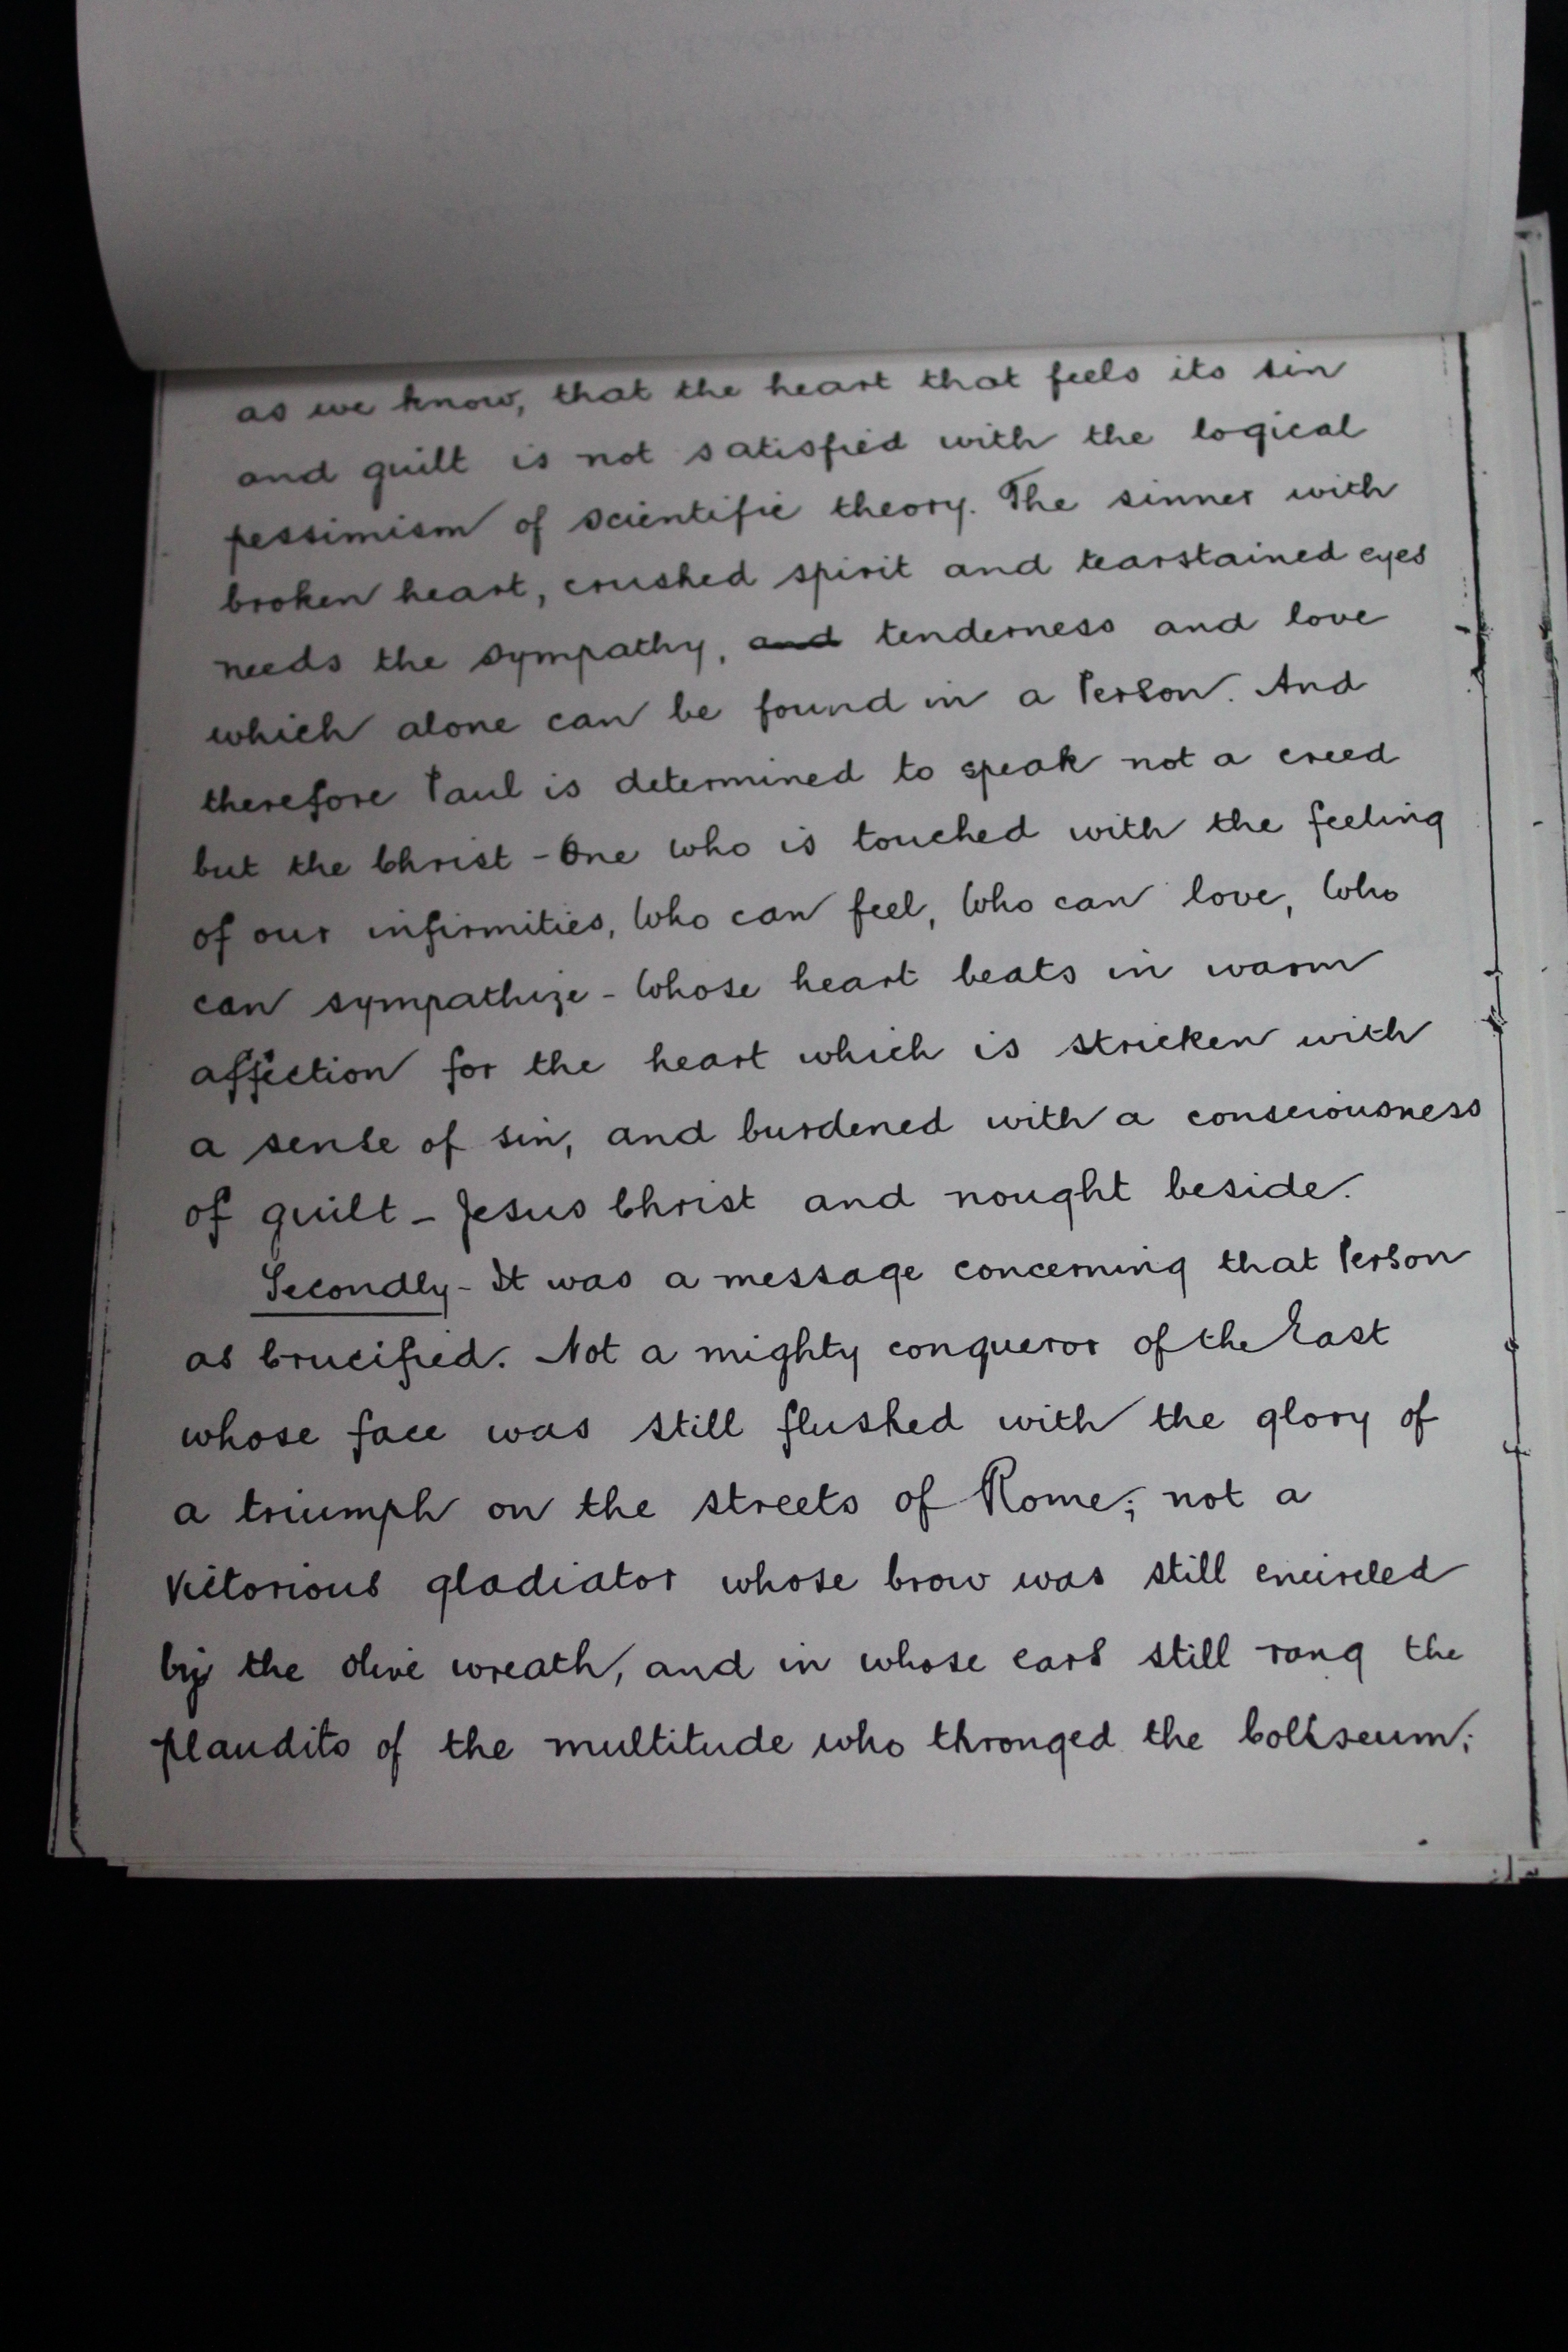 as we know, that the heart that feels its sin
and guilt is not satisfied with the logical
pessimism of scientific theory. The sinner with
broken heart, crushed spirit and tearstained eyes
needs the sympathy, ~~and~~ tenderness and love
which alone can be found in a Person. And
therefore Paul is determined to speak not a creed
but the Christ - One Who is touched with the feeling
of our infirmities, Who can feel, Who can love, Who
can sympathize - Whose heart beats in warm
affection for the heart which is stricken with
a sense of sin, and burdened with a consciousness
of guilt - Jesus Christ and nought beside.
Secondly - It was a message concerning that Person
as Crucified. Not a mighty conqueror of the East
whose face was still flushed with the glory of
a triumph on the streets of Rome; not a
victorious gladiator whose brow was still encircled
by the olive wreath, and in whose ears still rang the
plaudits of the multitude who thronged the Coliseum;